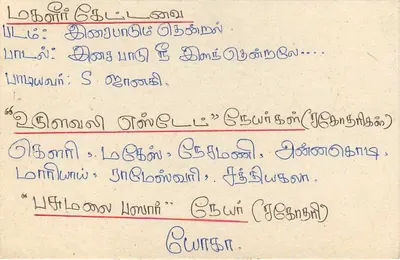 மகளீர் கேட்டவை
படம்: இசைபாடும் தென்றல்
பாடல்: இசை பாடு நீ இளந்தென்றலே....
பாடியவர்: S ஜானகி.
"உருளவலி எஸ்டேட்" நேயர்கள் (சகோதரிகள்)
கௌரி, மகேஸ், நேசமணி, அன்னகொடி,
மாரியாய், ராமேஸ்வரி, சத்தியகலா.
"பசுமலை பஸார்" நேயர் (சகோதரி)
யோகா.